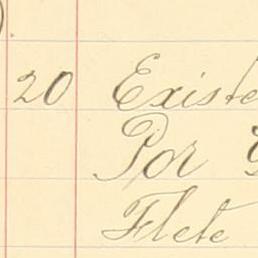 20 Existe
Por
Flete